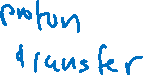 proton
transfer